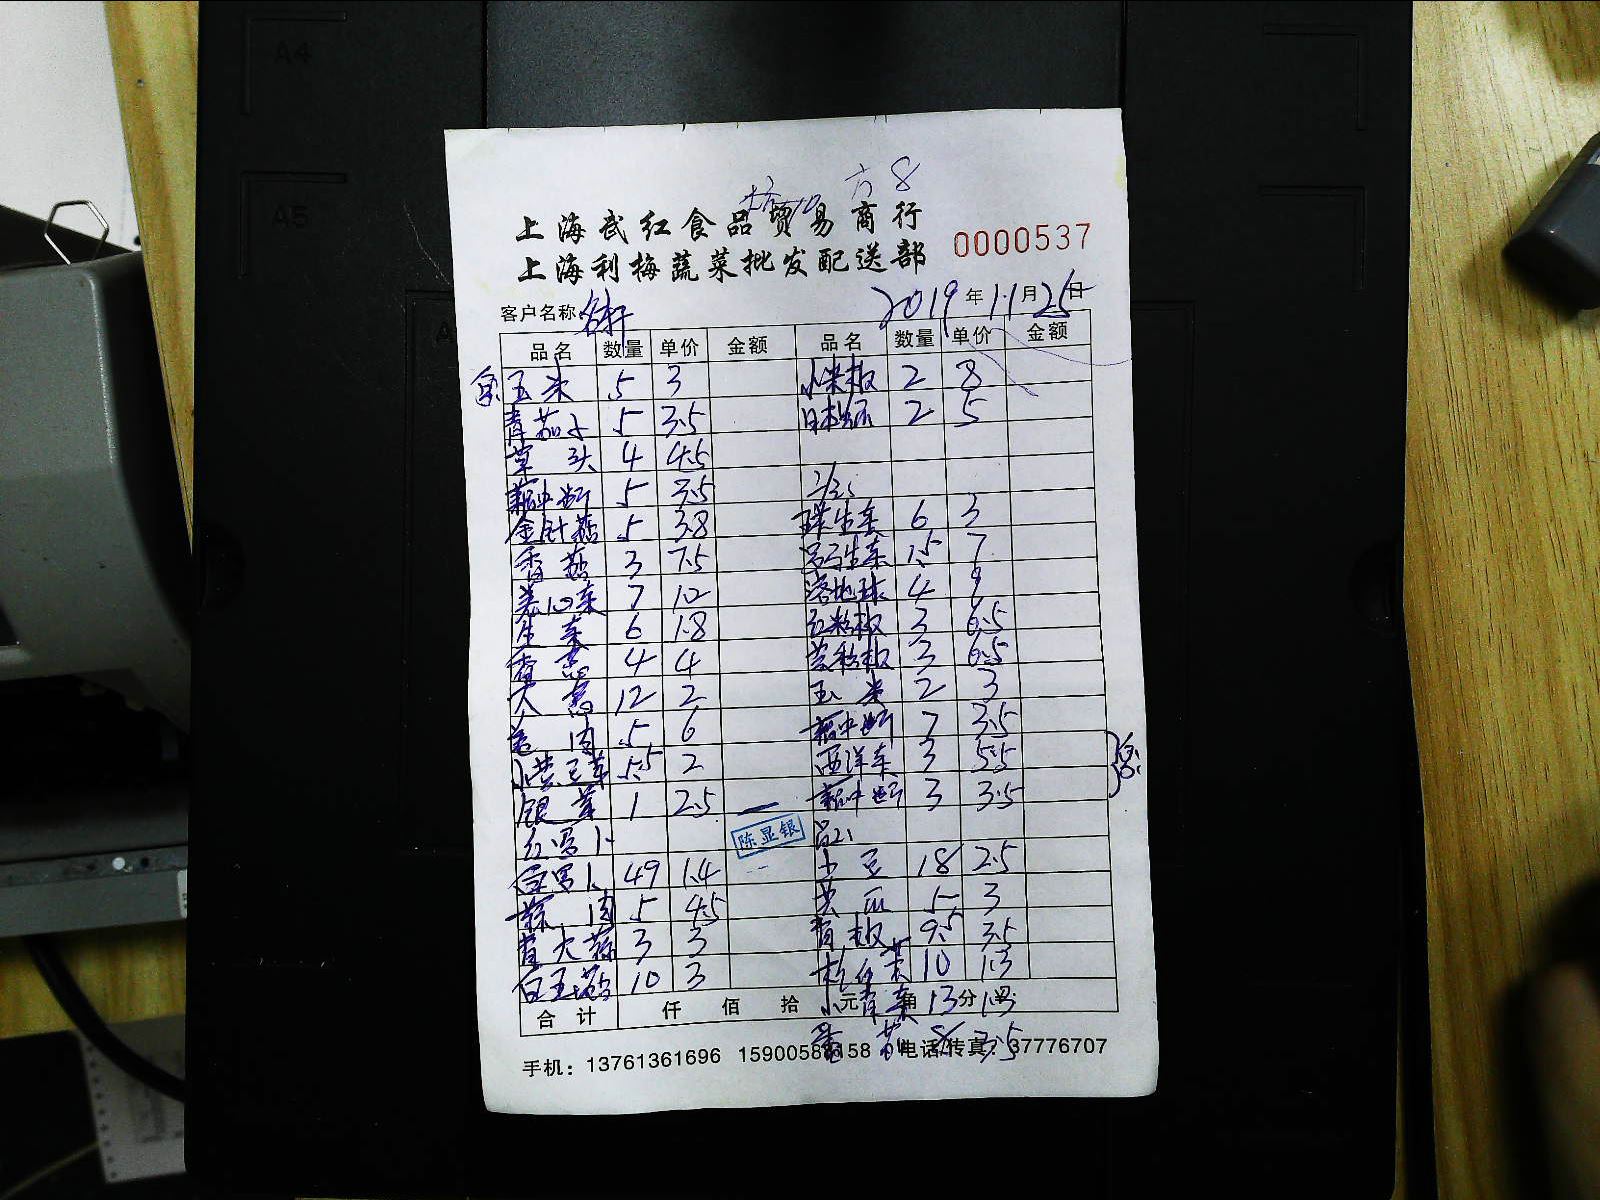 方 8
10
上海武红食品贸易商行
上海利梅蔬菜批发配送部
0000537
客户名称: 2019年11月25日
品名 数量 单价 金额 品名 数量 单价 金额
玉米 5 3 小米椒 2 8
青茄子 5 3.5 2 5
草头 4 4.5
5 3.5
金针菇 5 3.8 球生菜 6 3
香菇 3 7.5 罗马生菜 1.5 7
卷心菜 7 12 落地球 4 9
生菜 6 1.8 红彩椒 3 6.5
香葱 4 4 黄彩椒 3 6.5
大葱 12 2 玉米 2 3
姜肉 5 6 7 3.5
小黄豆芽 5.5 2 西洋菜 3 5.5
银芽 1 2.5 3 3.5
红罗卜
陈显银
白罗卜 49 1.4 土豆 18 2.5
蒜肉 5 4.5 黄瓜 5 3
青大蒜 3 3 青椒 9.5 3.5
白玉菇 10 3 10 1.3
合计 仟 佰 拾 元 角 分
小青菜 13 1.3
8 3.5
手机：13761361696 15900588158 电话/传真：37776707